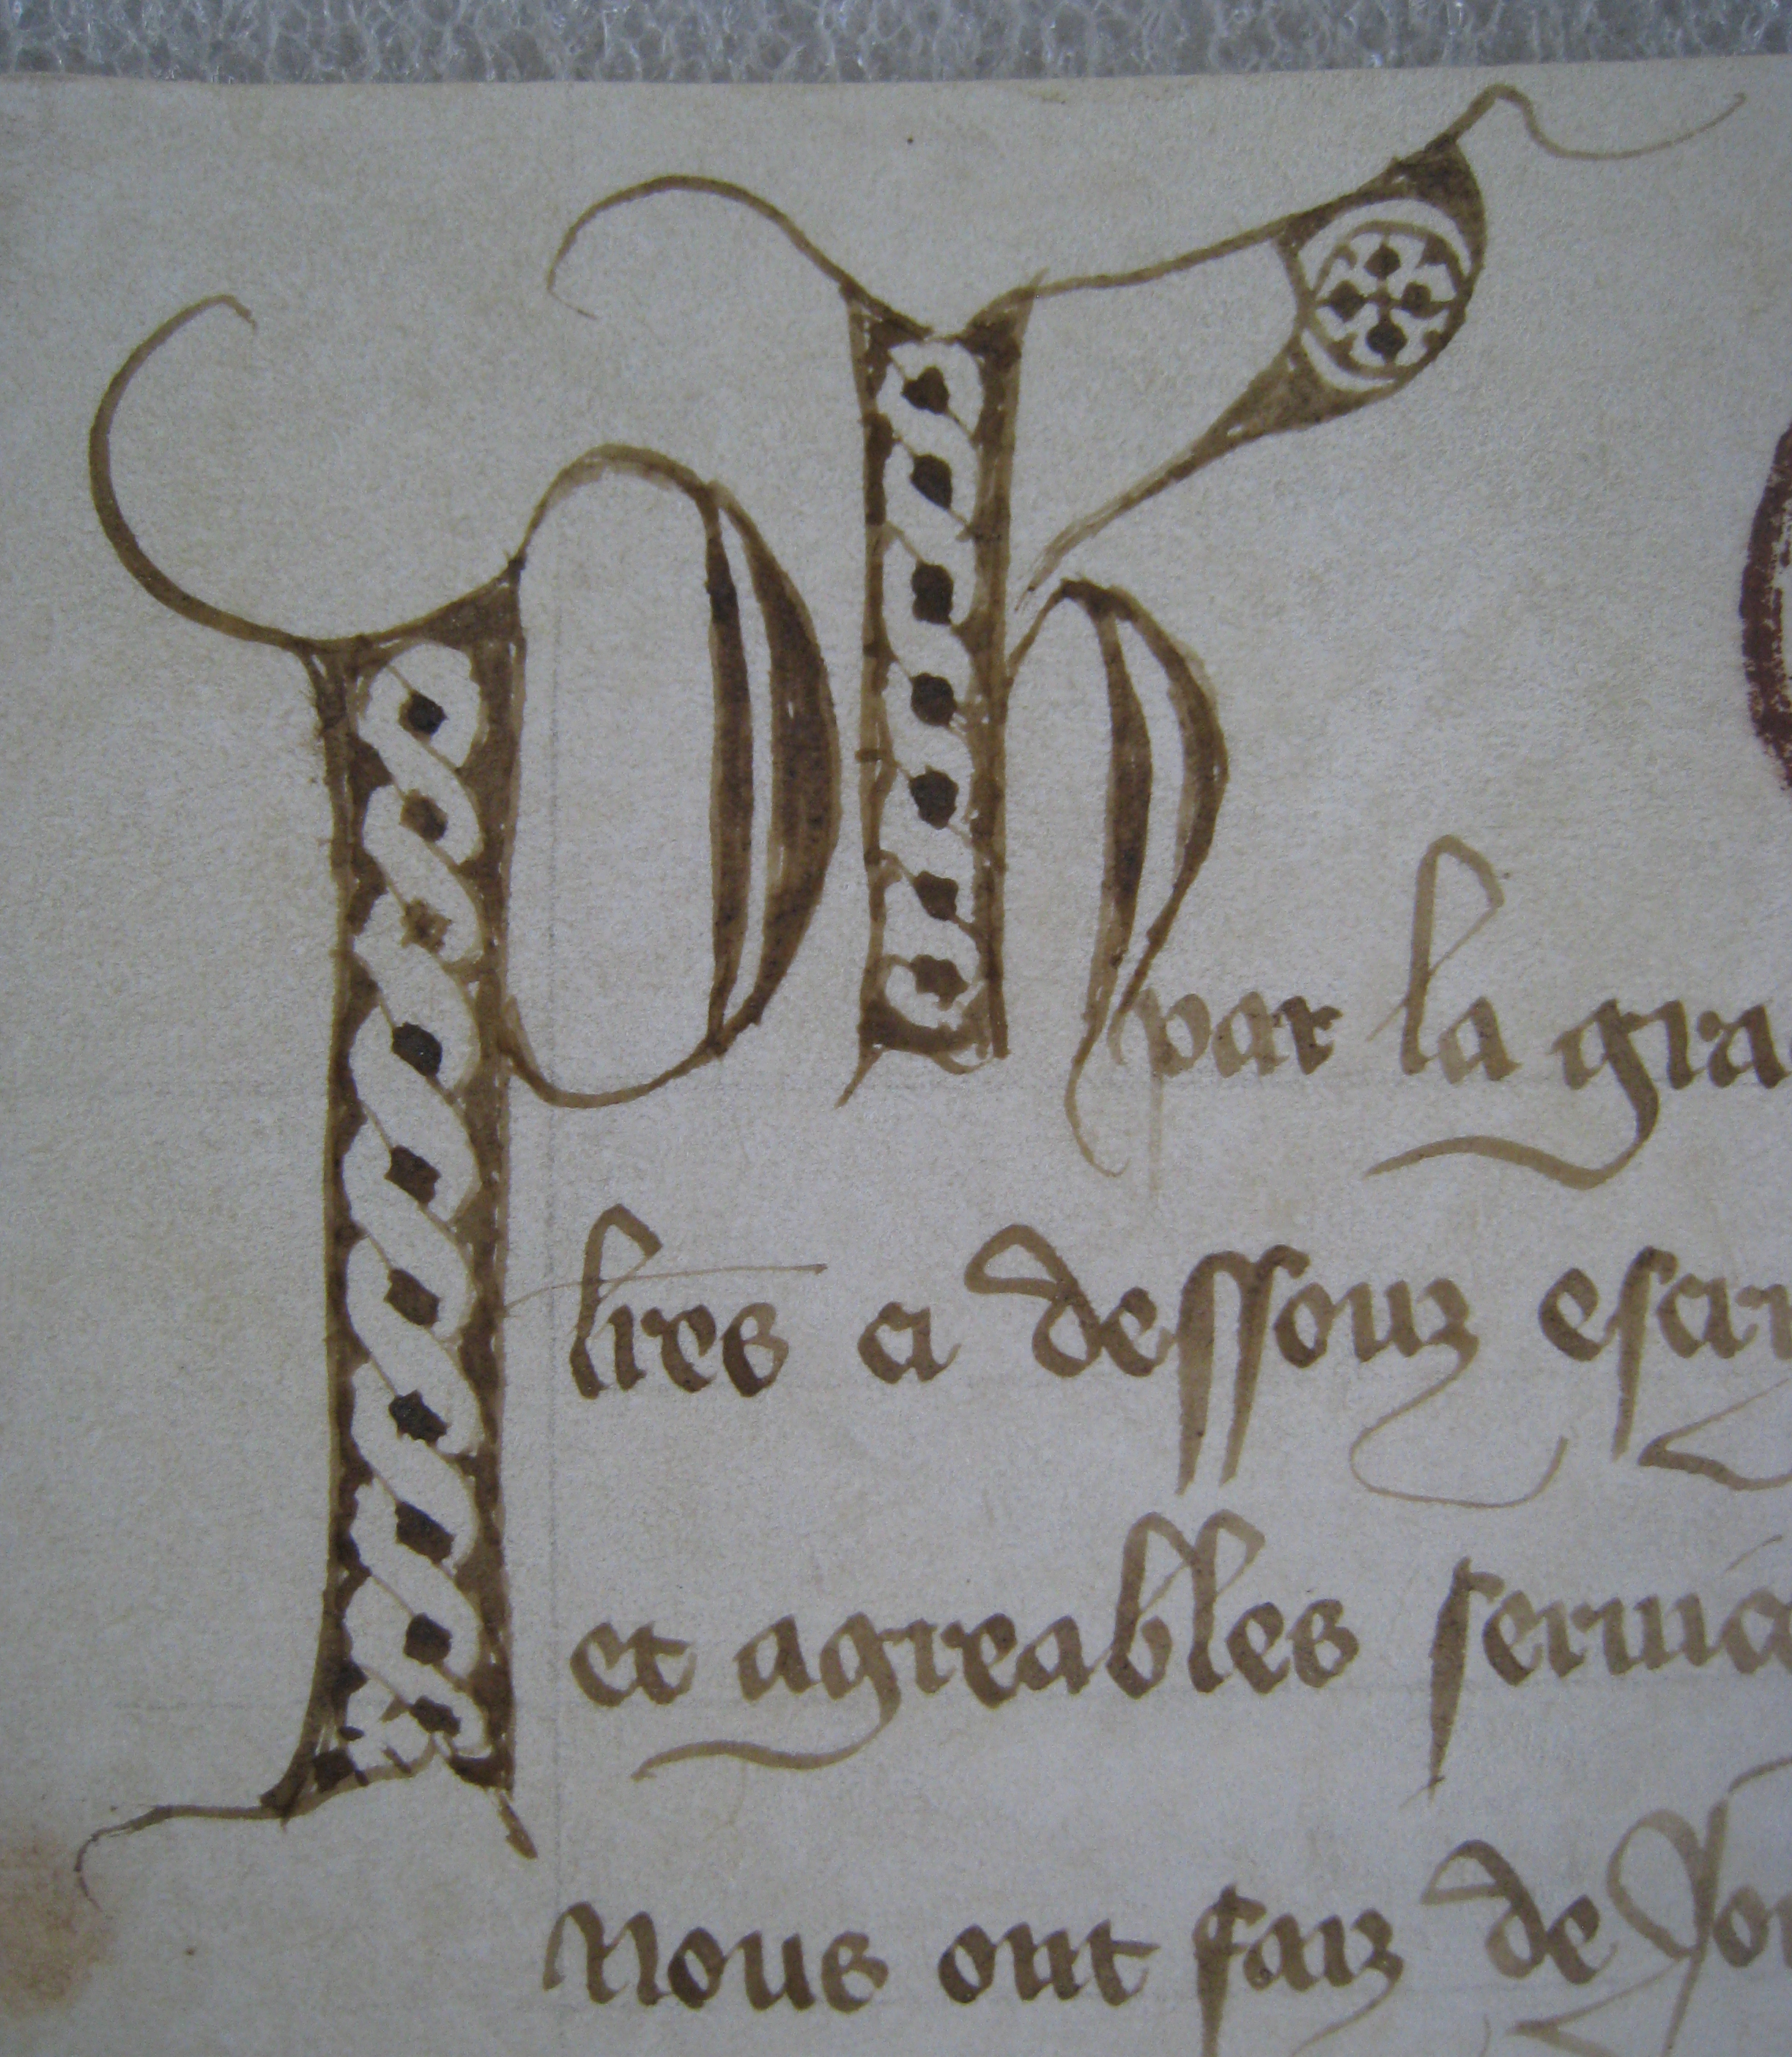 Ph par la gra
lres ci dessouz escri
et agreables servic
Nous ont faiz de Jo